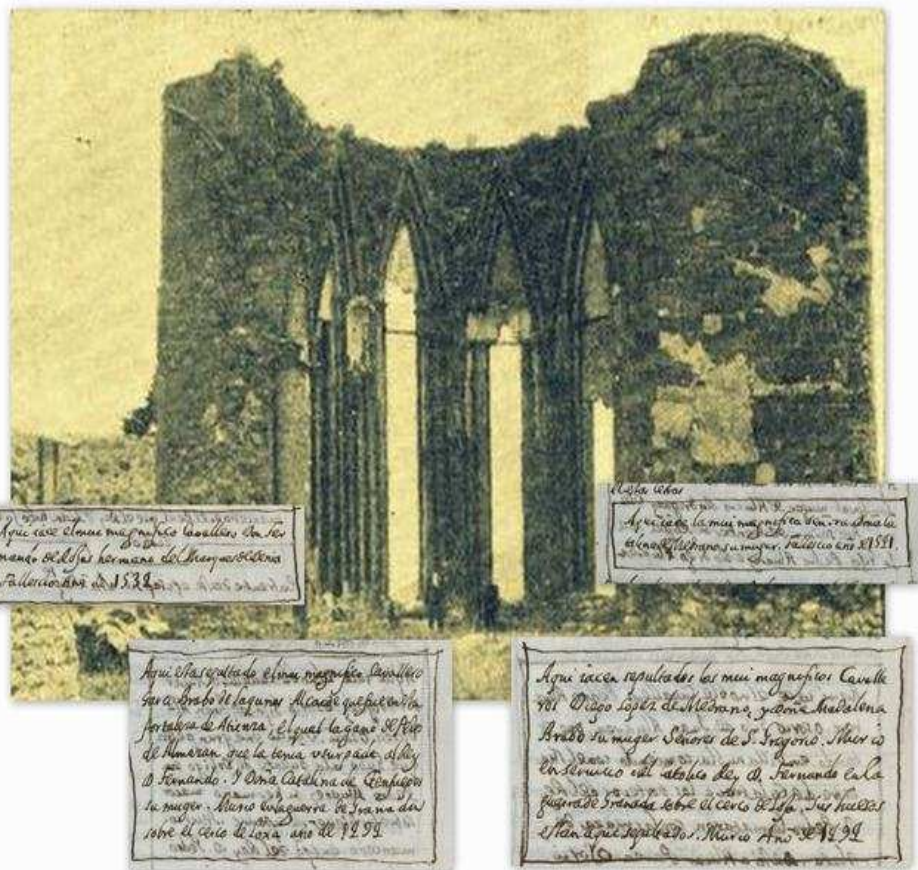 Aqui iace el mui magnifico Cavallero Don Fer
nando de Rojas hermano del Marques de Denia
Fallescio Año de 1532
Aqui iace la mui magnifica Señora Doña Ca
talina de Medrano su muger. Fallescio año de 1541
Aqui esta sepultado el mui magnifico Cavallero
Garci Brabo de Lagunas Alcaide que fue en la
fortaleza de Atienza, el qual la gano de
de Almazan que la tenia usurpada al Rey
D. Fernando. Y Doña Catalina de Cienfuegos
su muger. Murio en la guerra de Granada
sobre el cerco de Loxa año de 1492
Aqui iacen sepultados los mui magnificos Cavalle
ros Diego Lopez de Medrano, y Doña Madalena
Brabo su muger Señores de S. Gregorio. Murio
en servicio del catolico Rey D. Fernando en la
guerra de Granada sobre el cerco de Loja. Sus huesos
estan aqui sepultados. Murio Año de 1492